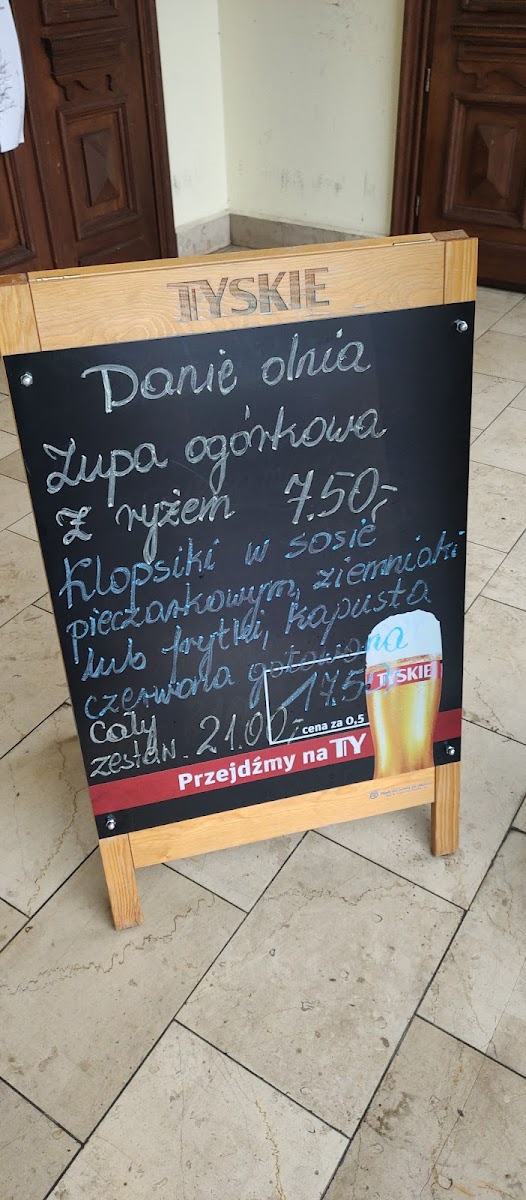 TYSKIE
Danie dnia
Zupa ogórkowa
z ryżem 7.50,-
Klopsiki w sosie
pieczarkowym, ziemniaki
lub frytki, kapusta
czerwona gotowana
TYSKIE
17.5
Cały
zestaw. 21.00,-
cena za 0,5
Przejdźmy na TY